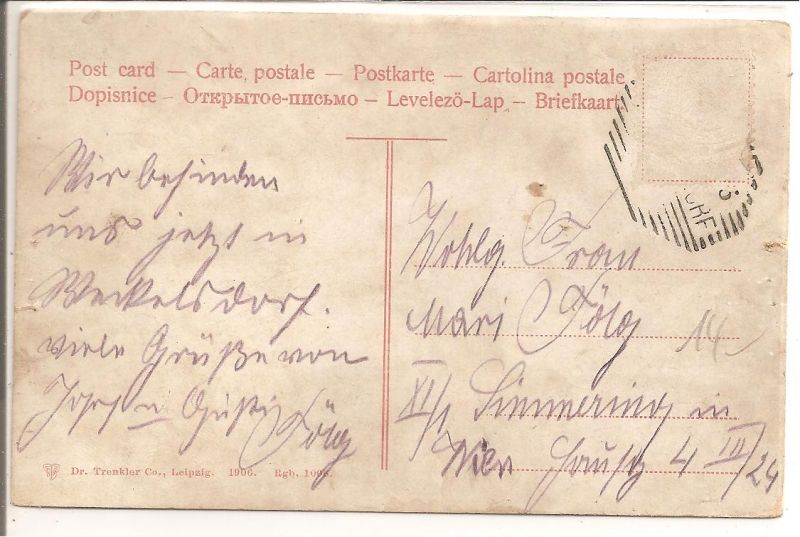 Post card — Carte postale — Postkarte — Cartolina postale
Dopisnice — Открытое-письмо — Levelező-Lap — Briefkaart
Wir befinden
uns jetzt in
Weckelsdorf.
viele Grüße von
Josef u Gusti
Fölg
Wohlg. Frau
Mari Fölg
14
XI/1 Simmering in
Wien 4 III/24
Dr. Trenkler Co., Leipzig. 1906. Rgb.